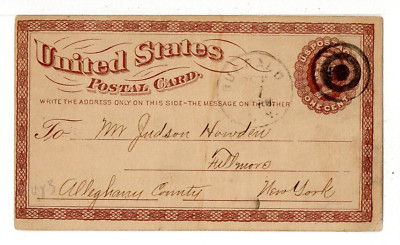 United States
POSTAL CARD.
BUFFALO
N.Y.
U.S. POSTAGE
ONE CENT
WRITE THE ADDRESS ONLY ON THIS SIDE-THE MESSAGE ON THE OTHER
To Mr Judson Howden
Fillmore
Alleghany County New York